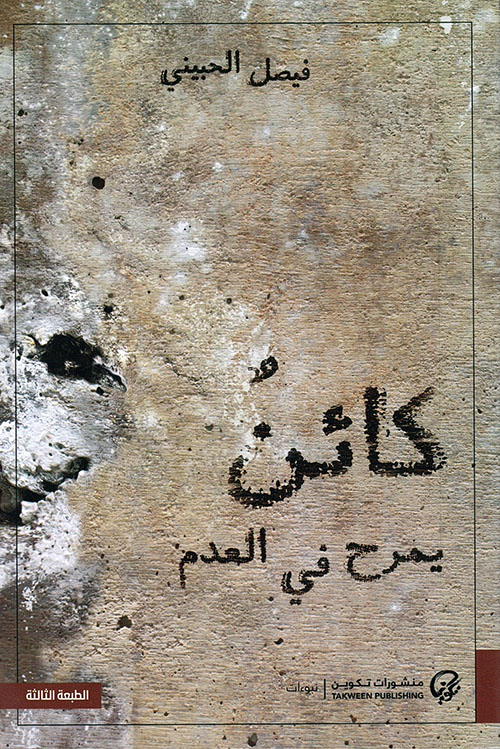 فيصل الحبيني
كائنٌ
يمرح في العدم
منشورات تكوين | نبوءات
TAKWEEN PUBLISHING
الطبعة الثالثة